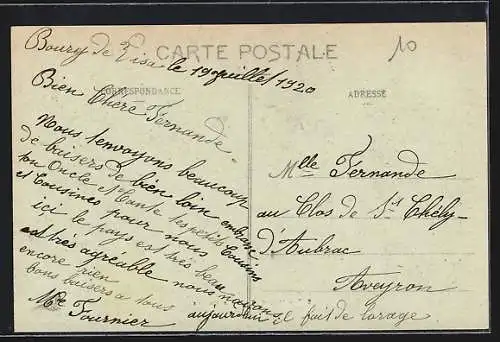 CARTE POSTALE
10
Bourg de Visa le 19 Juillet 1920
CORRESPONDANCE
ADRESSE
Bien Chère Fernande
Nous t'envoyons beaucoup
de baisers de bien loin embrasse
ton Oncle Tante tes petits Cousins
et Cousines pour nous
ici le pays est très beau
est très agreable nous n'avons
encore rien
bons baisers a tous
aujourdhui il fait de l'orage
Mme Fournier
Mlle Fernande
au Clos de St Chély-
d'Aubrac
Aveyron